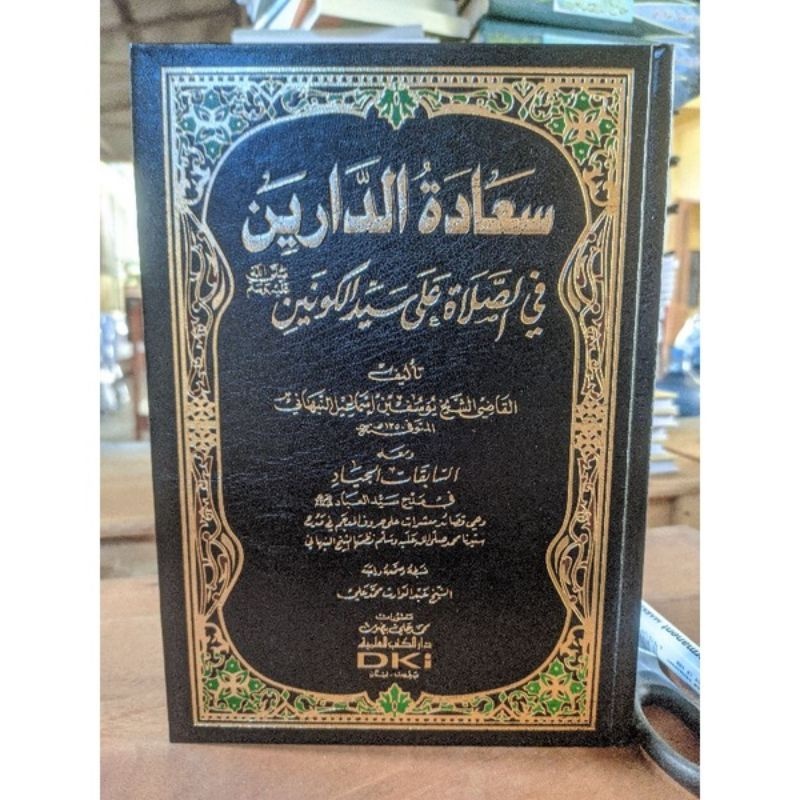 سَعَادَةُ الدَّارَيْن
في الصَّلَاةِ عَلَى سَيِّدِ الكَونَيْنِ صلى الله عليه وسلم
تأليف
القاضي الشيخ يوسف بن اسماعيل النبهاني
المتوفى ١٣٥٠ هـ
ومعه
السابقات الجياد
في مدح سيّد العباد ﷺ
وهي قصائد معشرات على حروف المعجم في مدح
سيدنا محمد صلى الله عليه وسلم نظمها الشيخ النبهاني
ضبطه وصححه وراجعه
الشيخ عبد الوارث محمد علي
منشورات
محمد علي بيضون
دار الكتب العلمية
DKi
بيروت - لبنان